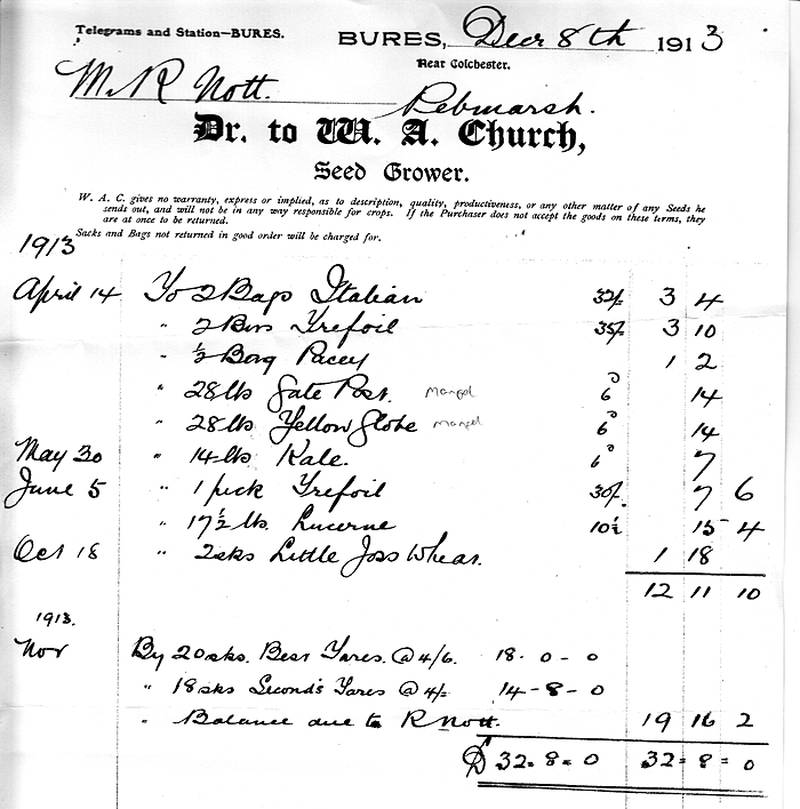 Telegrams and Station—BURES.
BURES, Decr 8th 1913
Near Colchester.
M. R Nott.
Pebmarsh.
Dr. to W. A. Church,
Seed Grower.
W. A. C. gives no warranty, express or implied, as to description, quality, productiveness, or any other matter of any Seeds he
sends out, and will not be in any way responsible for crops. If the Purchaser does not accept the goods on these terms, they
are at once to be returned.
Sacks and Bags not returned in good order will be charged for.
1913
April 14 To 2 Bags Italian 32/- 3 4
" 2 Trefoil 35/- 3 10
" ½ Bag Pacey 1 2
" 28 lbs Gate Post. Mangel 6d 14
" 28 lbs Yellow Globe Mangel 6d 14
May 30 " 14 lbs Kale. 6d 7
June 5 " 1 peck Trefoil 30/- 7 6
" 17½ lb. Lucerne 10½ 15 4
Oct 18 " 2 sks Little Joss Wheat. 1 18
12 11 10
1913.
Nov By 20 sks. Best Tares. @ 4/6. 18 - 0 - 0
" 18 sks Second's Tares @ 4/- 14 - 8 - 0
" Balance due to R Nott. 19 16 2
£ 32 = 8 = 0 32 = 8 = 0